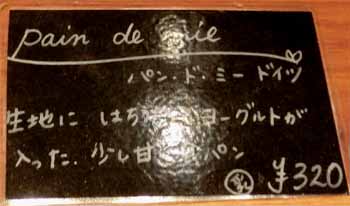 pain de mie
パン・ド・ミー ドイツ
生地に はち ヨーグルトが
入った、少し甘 パン
¥320